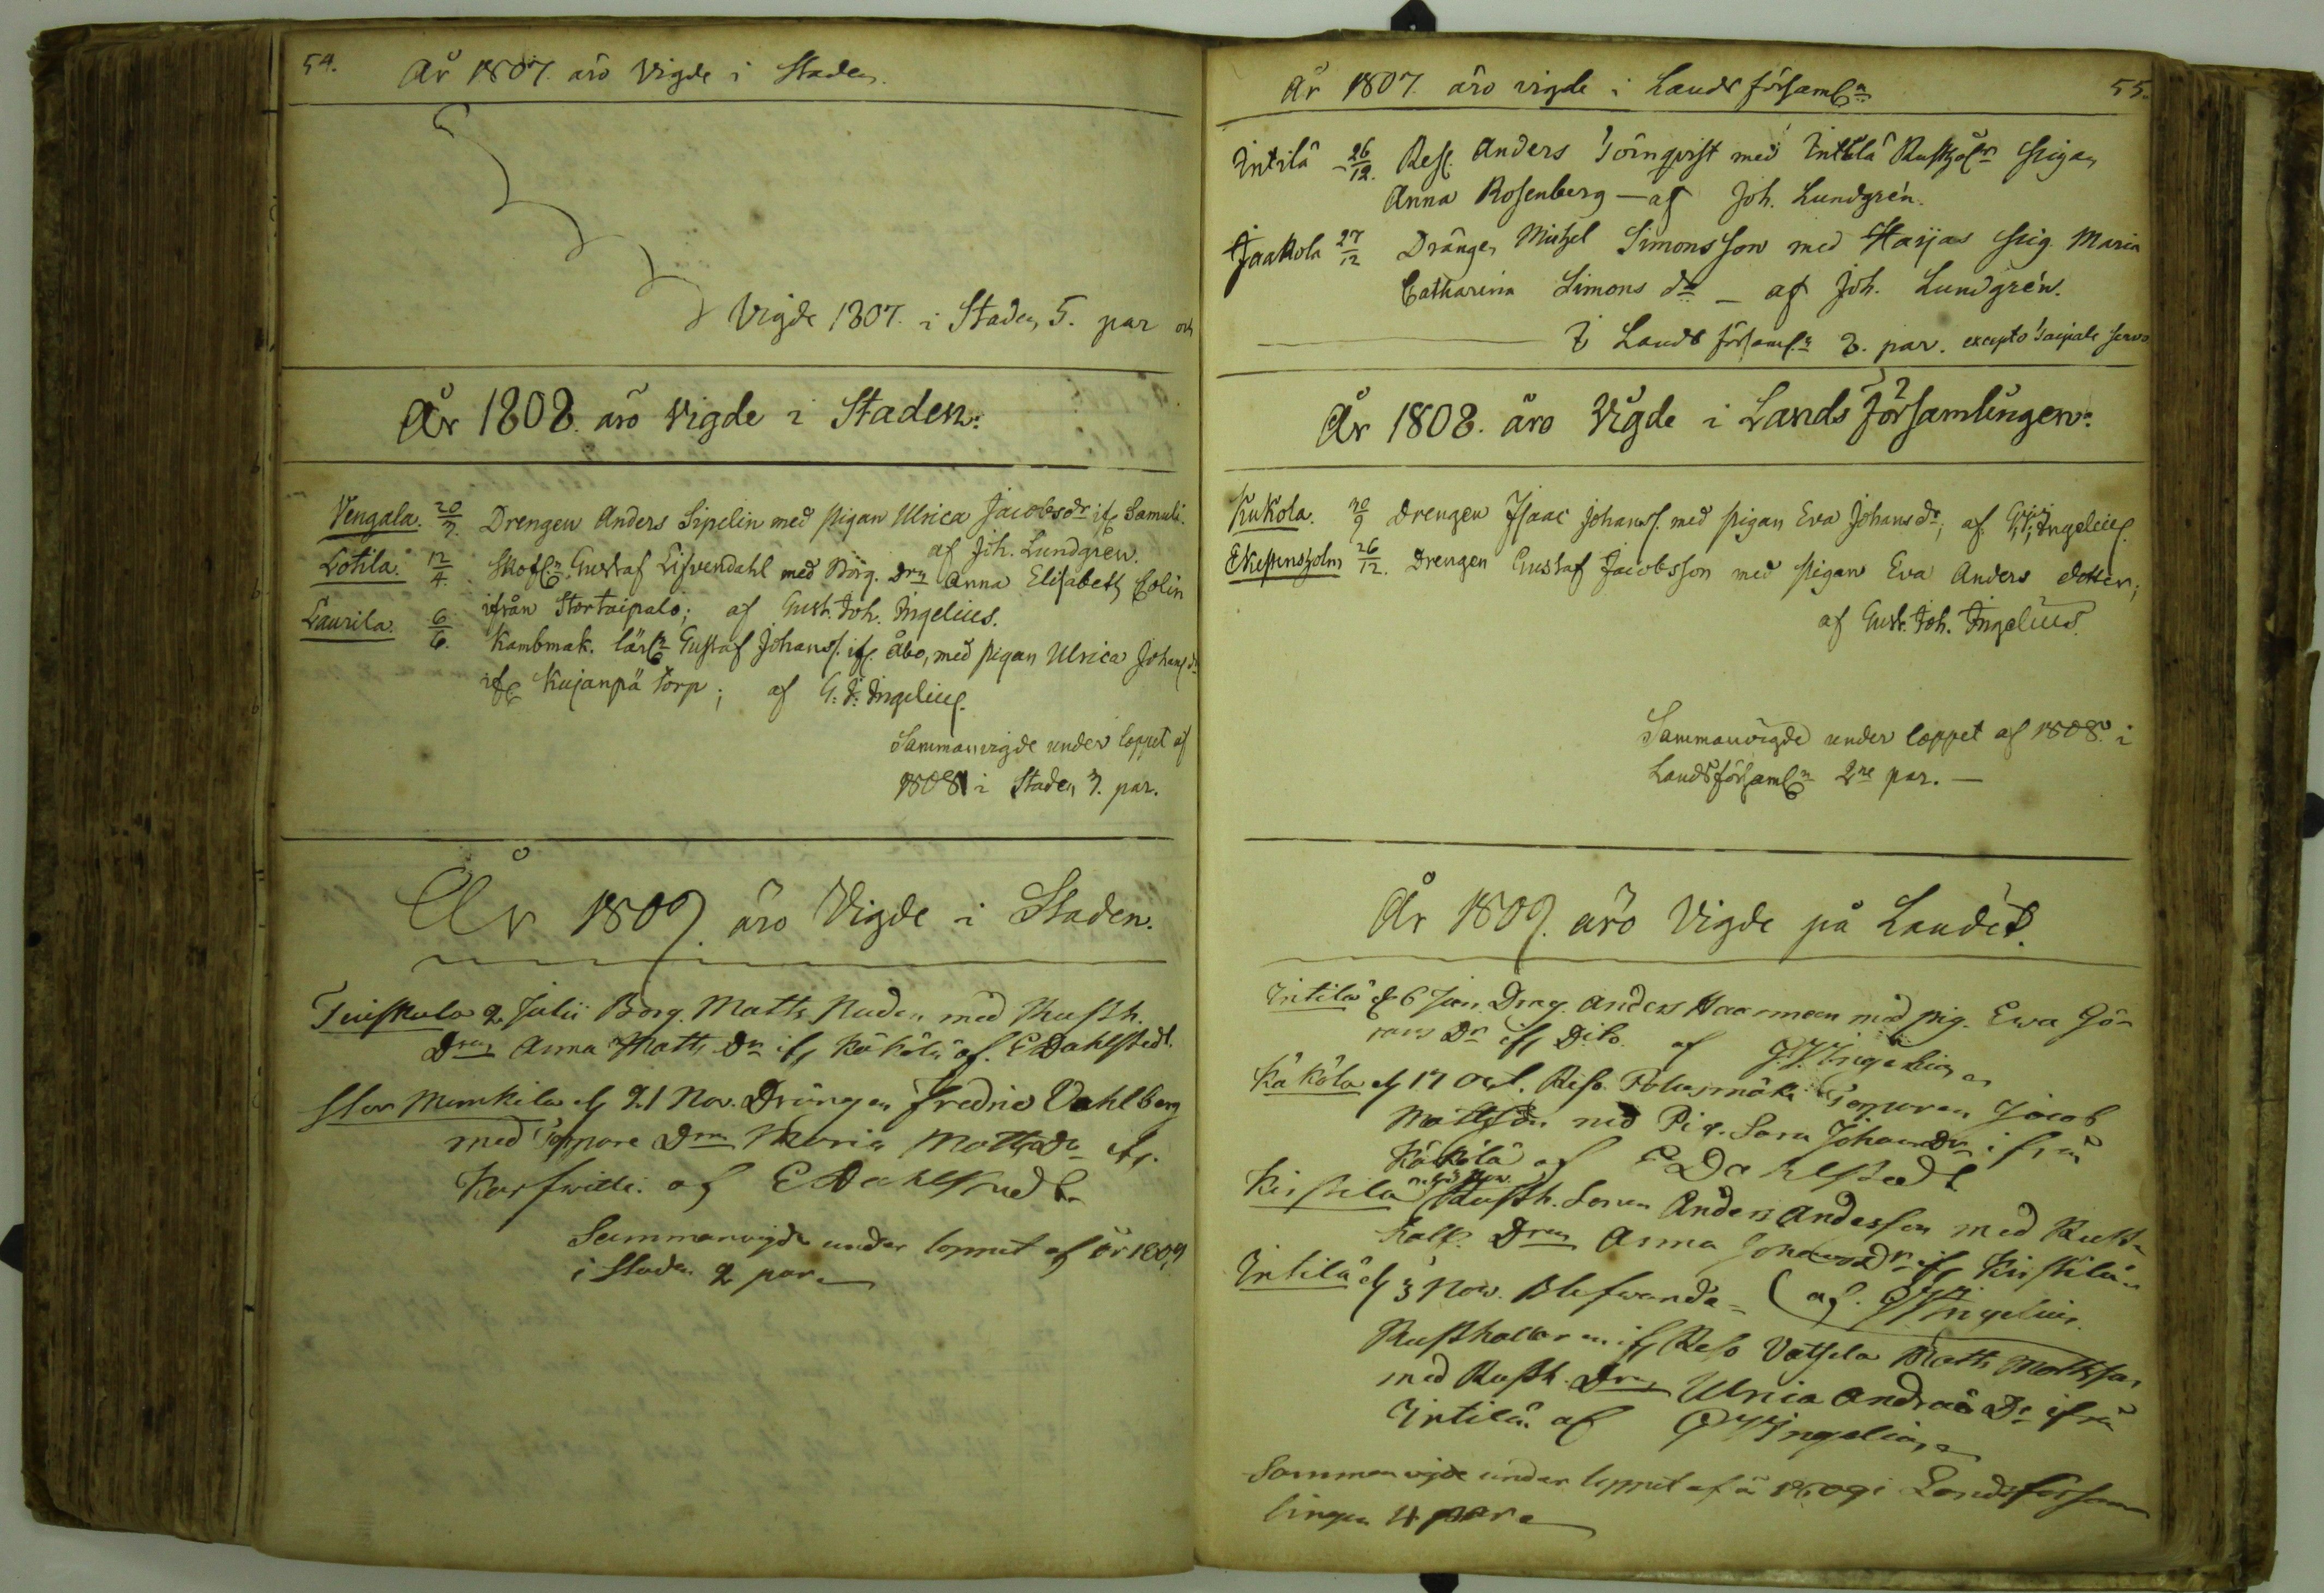 54.
År 1807. äro Vigde i Staden.
Vigde 1807. i Staden 5. par och
År 1808. äro Vigde i Staden.
Vengala. 20/3. Drengen Anders Sipelin med pigan Ulrica Jacobsdr if. Samuli.
af Joh. Lundgren.
Lotila. 12/4. Gustaf Lisvendahl med Borg. Drn Anna Elisabeth Colin
ifrån Stortaipale; af Gust. Joh. Ingelius.
Laurila. 6/6. Kambmak. lärln Gustaf Johanss. if. Åbo, med pigan Ulrica Johansdr
if Kujanpä Torp; af G. J. Ingelius.
Sammanvigde under loppet af
1808 i Staden 3. par.
År 1809. äro Vigde i Staden.
2 Julii Borg. Matts Ruden med Rusth.
Drn Anna Matts Dr if Käkölä af. E Dahlstedt.
Stor Munkila d 21 Nov. Drängen Fredric Dahlberg
med Torpare Drn Maria Matts Dr if.
af E Dahlstedt.
Sammanvigde under loppet af år 1809
i Staden 2 par.
År 1807. äro vigde i Lands församln
55.
Intilä 26/12. Res. Anders Törnqvist med Intilä Rusthålrn pigan
Anna Rosenberg — af Joh. Lundgrén.
Jaakola 27/12 Drängen Michel Simonsson med Harjas pig. Maria
Catharina Simons dr — af Joh. Lundgrén.
I Lands församl.n 2. par. excepto Taipale
År 1808. äro Vigde i Lands Församlingen.
Kukola. 30/9 Drengen Isaac Johanss. med pigan Eva Johans dr; af G. J. Ingelius.
Ekestensholm 26/12. Drengen Gustaf Jacobsson med pigan Eva Anders dotter;
af Gust. Joh. Ingelius.
Sammanvigde under loppet af 1808. i
Landsförsamln 2ne par. —
År 1809. äro Vigde på Landet.
Intilä d 6 Jan. Drag. Anders Haarman med pig. Ewa Gö-
rans Dr if Dito. af G. J. Ingelius
Käkölä d 17 Oct. Reso Torparen Jacob
Mattsson med Pig. Sara Johans Dr ifrån
Käkölä af E Dahlstedt
Kirstilä Rusth. Sonen Anders Andersson med Rust-
håll. Drn Anna Johans Dr if Kirstilä
(af. G J Ingelius.
Intilä d 3 Nov.
Rusthållaren if Reso Vatsela Matts Mattsson
med Rusth. Drn Ulrica Andreæ Dr ifrån
Intilä. af G J Ingelius
Sammanvigde under loppet af år 1809 i Landsförsam
lingen 4 par